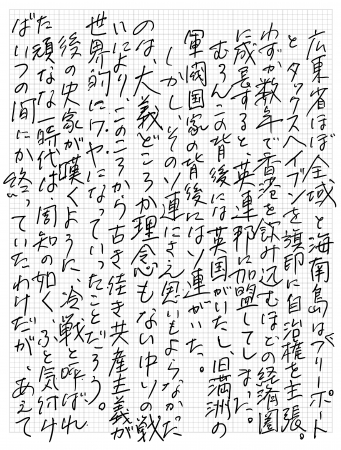 広東省ほぼ全域と海南島はフリーポート
とタックスヘイブンを旗印に自治権を主張。
わずか数年で香港を飲み込むほどの経済圏
に成長すると、英連邦に加盟してしまった。
むろんこの背後には英国がいたし、旧満洲の
軍閥国家の背後にはソ連がいた。
しかし、そのソ連にさえ思いもよらなかった
のは、大義どころか理念もない中ソの戦
いにより、このころから古き佳き共産主義が
世界的にワヤになっていったことだろう。
後の史家が嘆くように、冷戦と呼ばれ
た頑なな一時代は、周知の如く、ふと気付け
ばいつの間にか終っていたわけだが、あえて